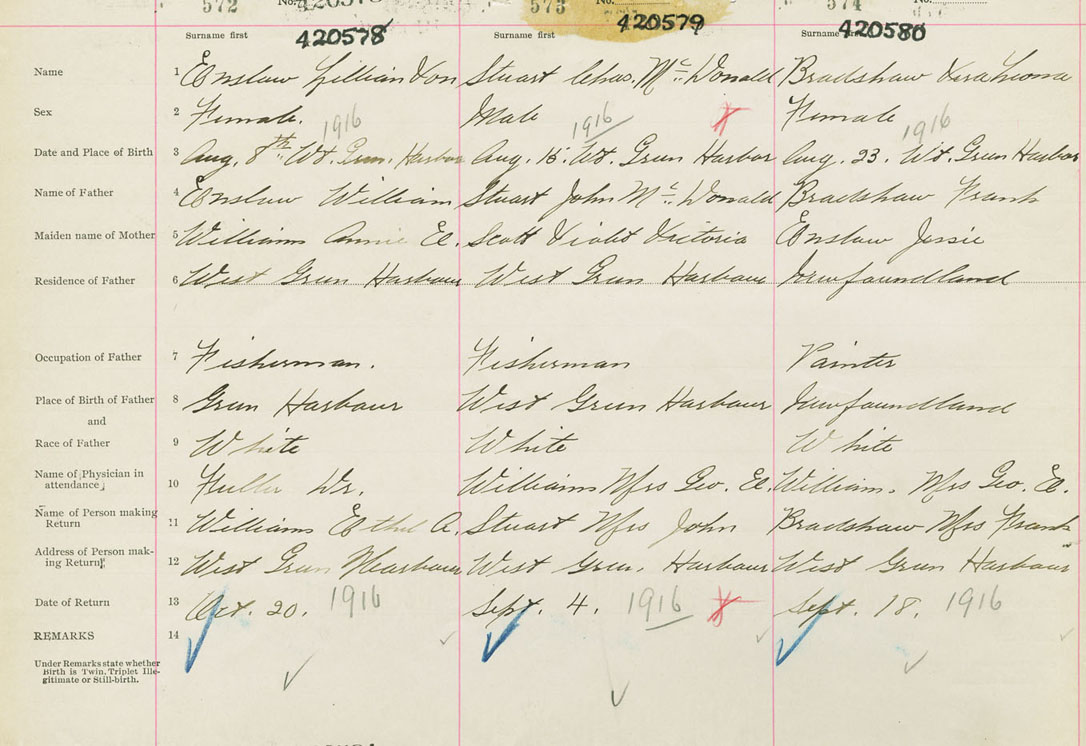 572 No. 573 No. 574 No.
Surname first 420578 Surname first 420579 Surname first 420580
Name 1 Enslow Lillian Stuart Chas. Mc. Donald Bradshaw Vera Leona
Sex 2 Female. Male Female
1916 1916 1916
Date and Place of Birth 3 Aug. 8th Wt. Green Harbor Aug. 15. Wt. Green Harbor Aug. 23. Wt. Green Harbor
Name of Father 4 Enslow William Stuart John Mc. Donald Bradshaw Frank
Maiden name of Mother 5 Williams Annie El. Scott Violet Victoria Enslow Jessie
Residence of Father 6 West Green Harbour West Green Harbour Newfoundland
Occupation of Father 7 Fisherman. Fisherman Painter
Place of Birth of Father 8 Green Harbour West Green Harbour Newfoundland
and
Race of Father 9 White White White
Name of Physician in
attendance 10 Fuller Dr. Williams Mrs Geo. El. William. Mrs Geo. El.
Name of Person making
Return 11 Williams Ethel A. Stuart Mrs John Bradshaw Mrs Frank
Address of Person mak-
ing Return 12 West Green Harbour West Green Harbour West Green Harbour
Date of Return 13 Oct. 20. 1916 Sept. 4. 1916 Sept. 18. 1916
REMARKS 14
Under Remarks state whether
Birth is Twin, Triplet Ille-
gitimate or Still-birth.